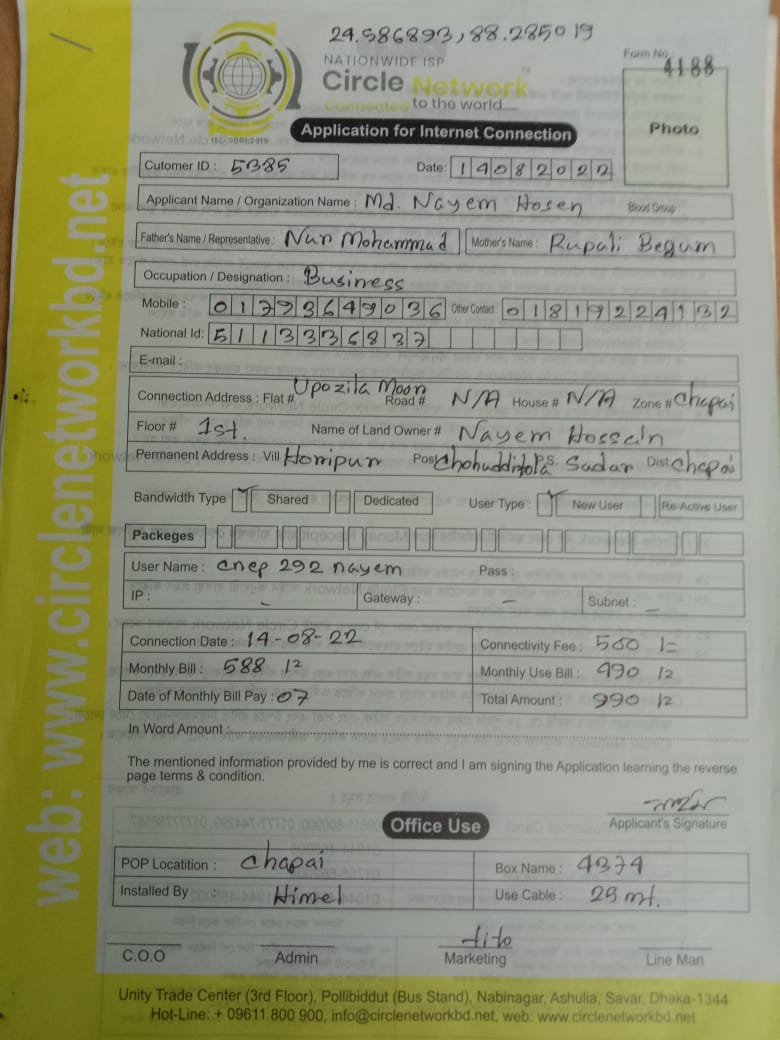 24.586893, 88.285019
NATIONWIDE ISP
Circle Network
Connected to the world.....
ISO 9001:2015
Form No. 4188
Application for Internet Connection
Photo
Cutomer ID : 5385 Date: 14082022
Applicant Name / Organization Name : Md. Nayem Hosen Blood Group :
Father's Name / Representative : Nur Mohammad Mother's Name : Rupali Begum
Occupation / Designation : Business
Mobile : 01793649036 Other Contact : 01819224132
National Id: 5113336837
E-mail :
Connection Address : Flat # Upozila Moon Road # N/A House # N/A Zone # Chapai
Floor # 1st. Name of Land Owner # Nayem Hossain
Permanent Address : Vill Horripur Post P.S. Sadar Dist: Chapai
Bandwidth Type Shared Dedicated User Type : New User Re-Active User
Packeges
User Name : cnep 292 nayem Pass :
IP : - Gateway : - Subnet : -
Connection Date : 14-08-22 Connectivity Fee : 500 /=
Monthly Bill : 588 /= Monthly Use Bill : 490 /=
Date of Monthly Bill Pay : 07 Total Amount : 990 /=
In Word Amount :
The mentioned information provided by me is correct and I am signing the Application learning the reverse
page terms & condition.
Applicant's Signature
Office Use
POP Locatition : Chapai Box Name : 4374
Installed By : Himel Use Cable : 25 mt.
tito
C.O.O Admin Marketing Line Man
Unity Trade Center (3rd Floor), Pollibiddut (Bus Stand), Nabinagar, Ashulia, Savar, Dhaka-1344
Hot-Line: + 09611 800 900, info@circlenetworkbd.net, web: www.circlenetworkbd.net
web: www.circlenetworkbd.net